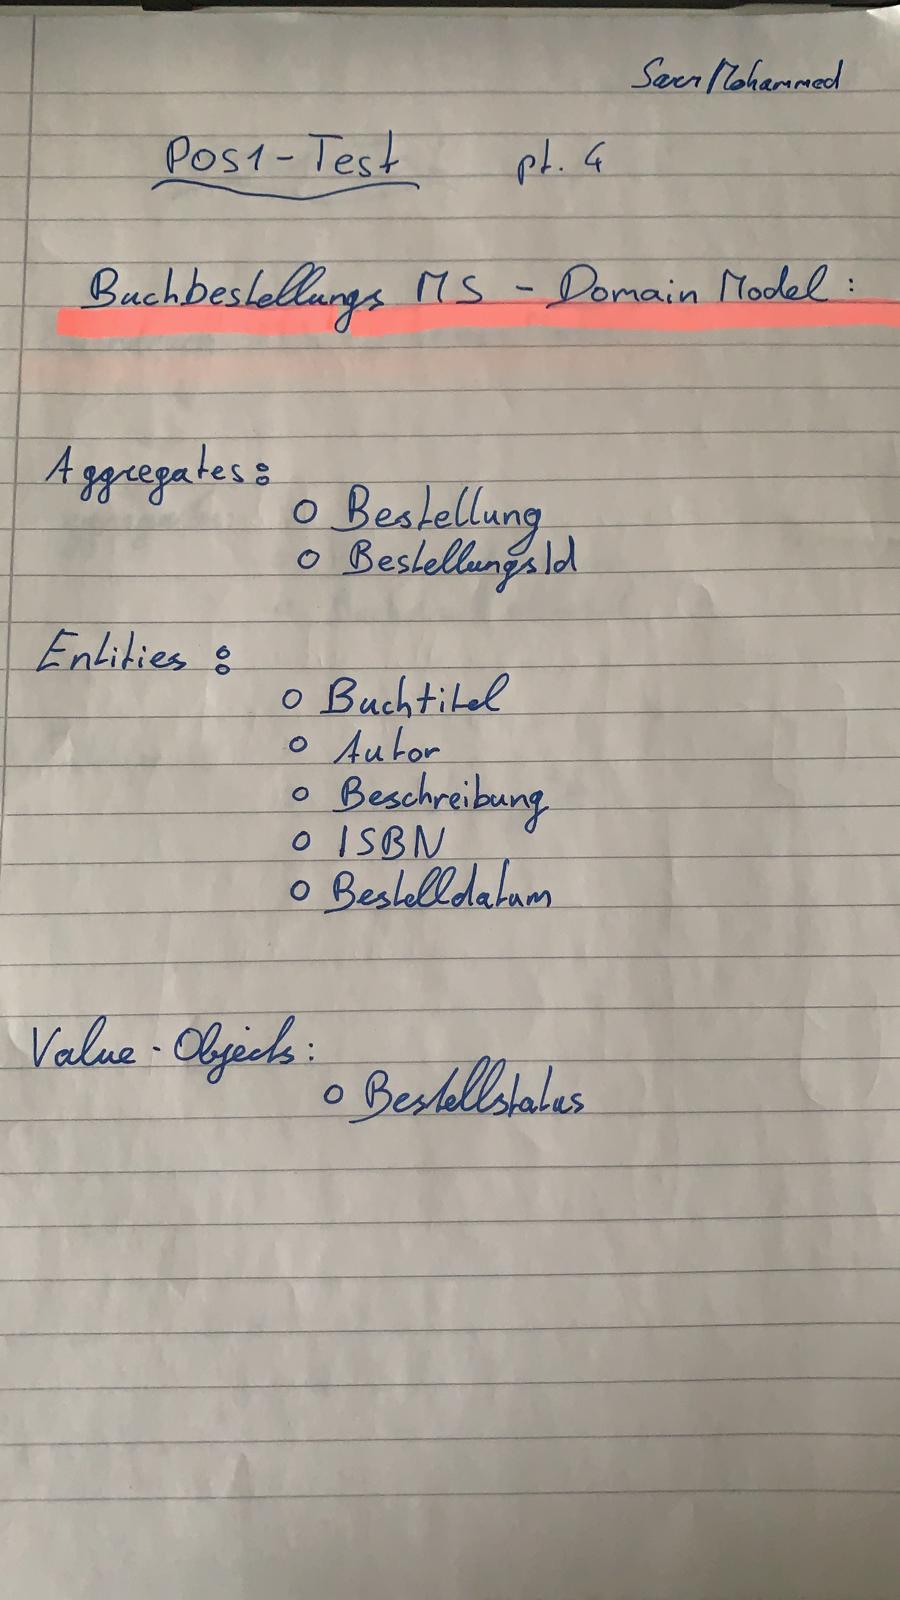 Mohammed
Pos1-Test pt. 4
Buchbestellungs MS - Domain Model:
Aggregates:
o Bestellung
o BestellungsId
Entities:
o Buchtitel
o Autor
o Beschreibung
o ISBN
o Bestelldatum
Value-Objects:
o Bestellstatus